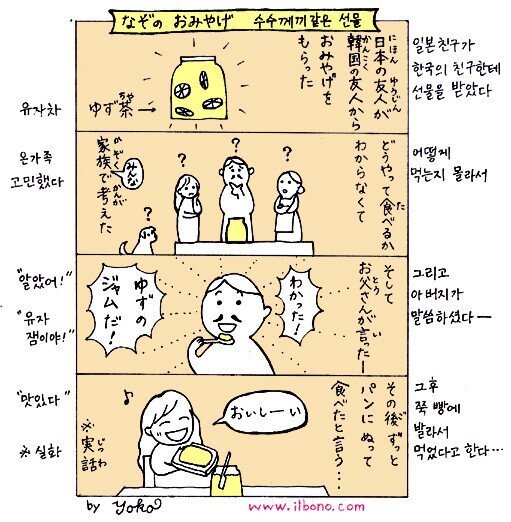 なぞの おみやげ 수수께끼같은 선물
にほん ゆうじん
日本の友人が
かんこく
韓国の友人から
おみやげを
もらった
ちゃ
ゆず茶→
유자차
일본친구가
한국의 친구한테
선물을 받았다
どうやって食べるか
わからなくて
みんな
かぞく かんが
家族で考えた
?
?
?
?
어떻게
먹는지 몰라서
온가족
고민했다
そして
お父さんが言ったー
わかった!
ゆずの
ジャムだ!
그리고
아버지가
말씀하셨다ー
"알았어!"
"유자
잼이야!"
その後ずっと
パンにぬって
食べたと言う…
おいしーい
♪
じつわ
※実話
그후
쭉 빵에
발라서
먹었다고 한다…
"맛있다"
※실화
by Yoko
www.ilbono.com